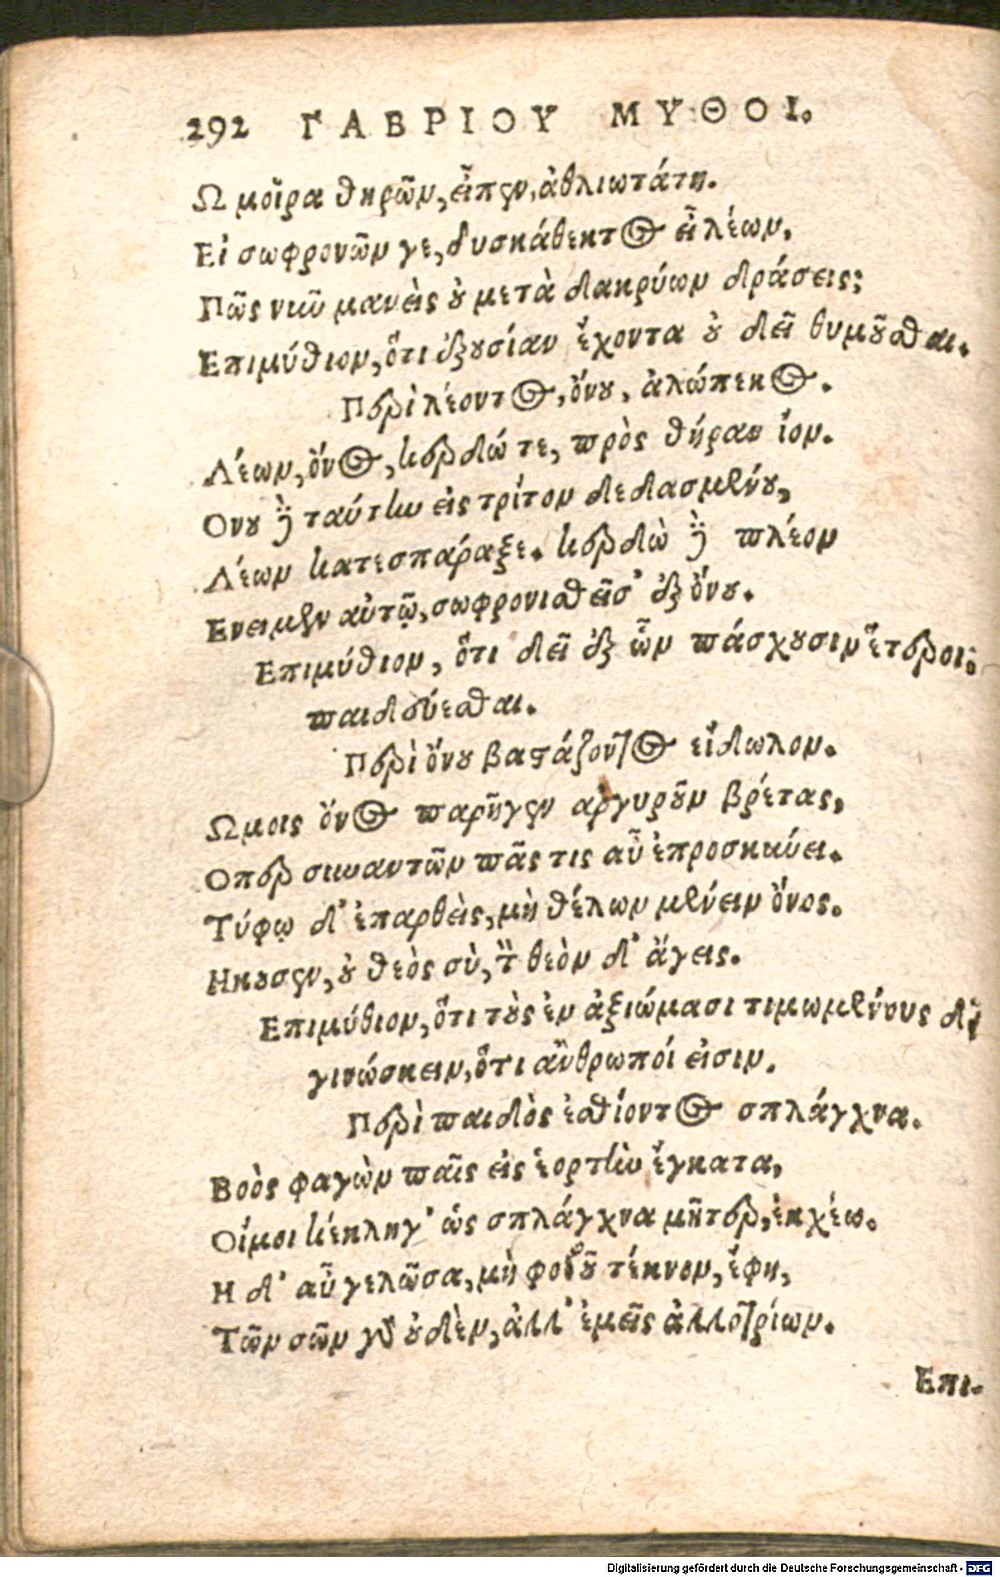 292 ΓΑΒΡΙΟΥ ΜΥΘΟΙ.
Ω μοῖρα θηρῶν, εἶπεν, ἀθλιωτάτη.
Εἰ σωφρονῶν γε, δυσκάθεκτος εἶ λέων,
Πῶς νῦν μανεὶς οὐ μετὰ δακρύων δράσεις;
Επιμύθιον, ὅτι ἐξουσίαν ἔχοντα οὐ δεῖ θυμοῦσθαι.
Περὶ λέοντος, ὄνου, ἀλώπεκος.
Λέων, ὄνος, κερδώ τε, πρὸς θήραν ἴον.
Ονου δὲ ταύτην εἰς τρίτον δεδασμένου,
Λέων κατεσπάραξε. κερδὼ δὲ πλέον
Ενειμεν αὐτῷ, σωφρονισθεῖσ' ἐξ ὄνου.
Επιμύθιον, ὅτι δεῖ ἐξ ὧν πάσχουσιν ἕτεροι
παιδεύεσθαι.
Περὶ ὄνου βαστάζοντος εἴδωλον.
Ωμοις ὄνος παρῆγεν ἀργυροῦν βρέτας,
Οπερ συναντῶν πᾶς τις αὖ ἐπροσκύει.
Τύφῳ δ' ἐπαρθεὶς, μὴ θέλων μένειν ὄνος.
Ηκουσεν, οὐ θεὸς σὺ, τὸν θεὸν δ' ἄγεις.
Επιμύθιον, ὅτι τοὺς ἐν ἀξιώμασι τιμωμένους δεῖ
γινώσκειν, ὅτι ἄνθρωποί εἰσιν.
Περὶ παιδὸς ἐσθίοντος σπλάγχνα.
Βοὸς φαγὼν παῖς εἰς ἑορτὴν ἔγκατα,
Οἴμοι κέκληγ' ὡς σπλάγχνα μῆτερ, ἐκχέω.
Η δ' αὖ γελῶσα, μὴ φοβοῦ τέκνον, ἔφη,
Τῶν σῶν γὰρ οὐδὲν, ἀλλ' ἐμεῖς ἀλλοτρίων.
Επι-
Digitalisierung gefördert durch die Deutsche Forschungsgemeinschaft - DFG